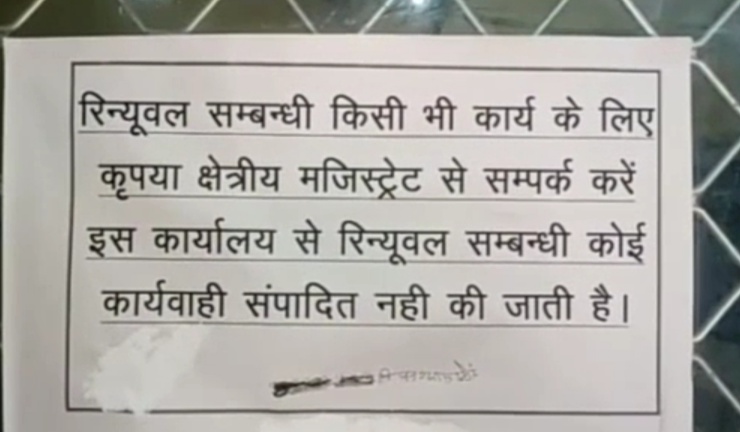 रिन्यूवल सम्बन्धी किसी भी कार्य के लिए
कृपया क्षेत्रीय मजिस्ट्रेट से सम्पर्क करें
इस कार्यालय से रिन्यूवल सम्बन्धी कोई
कार्यवाही संपादित नही की जाती है।